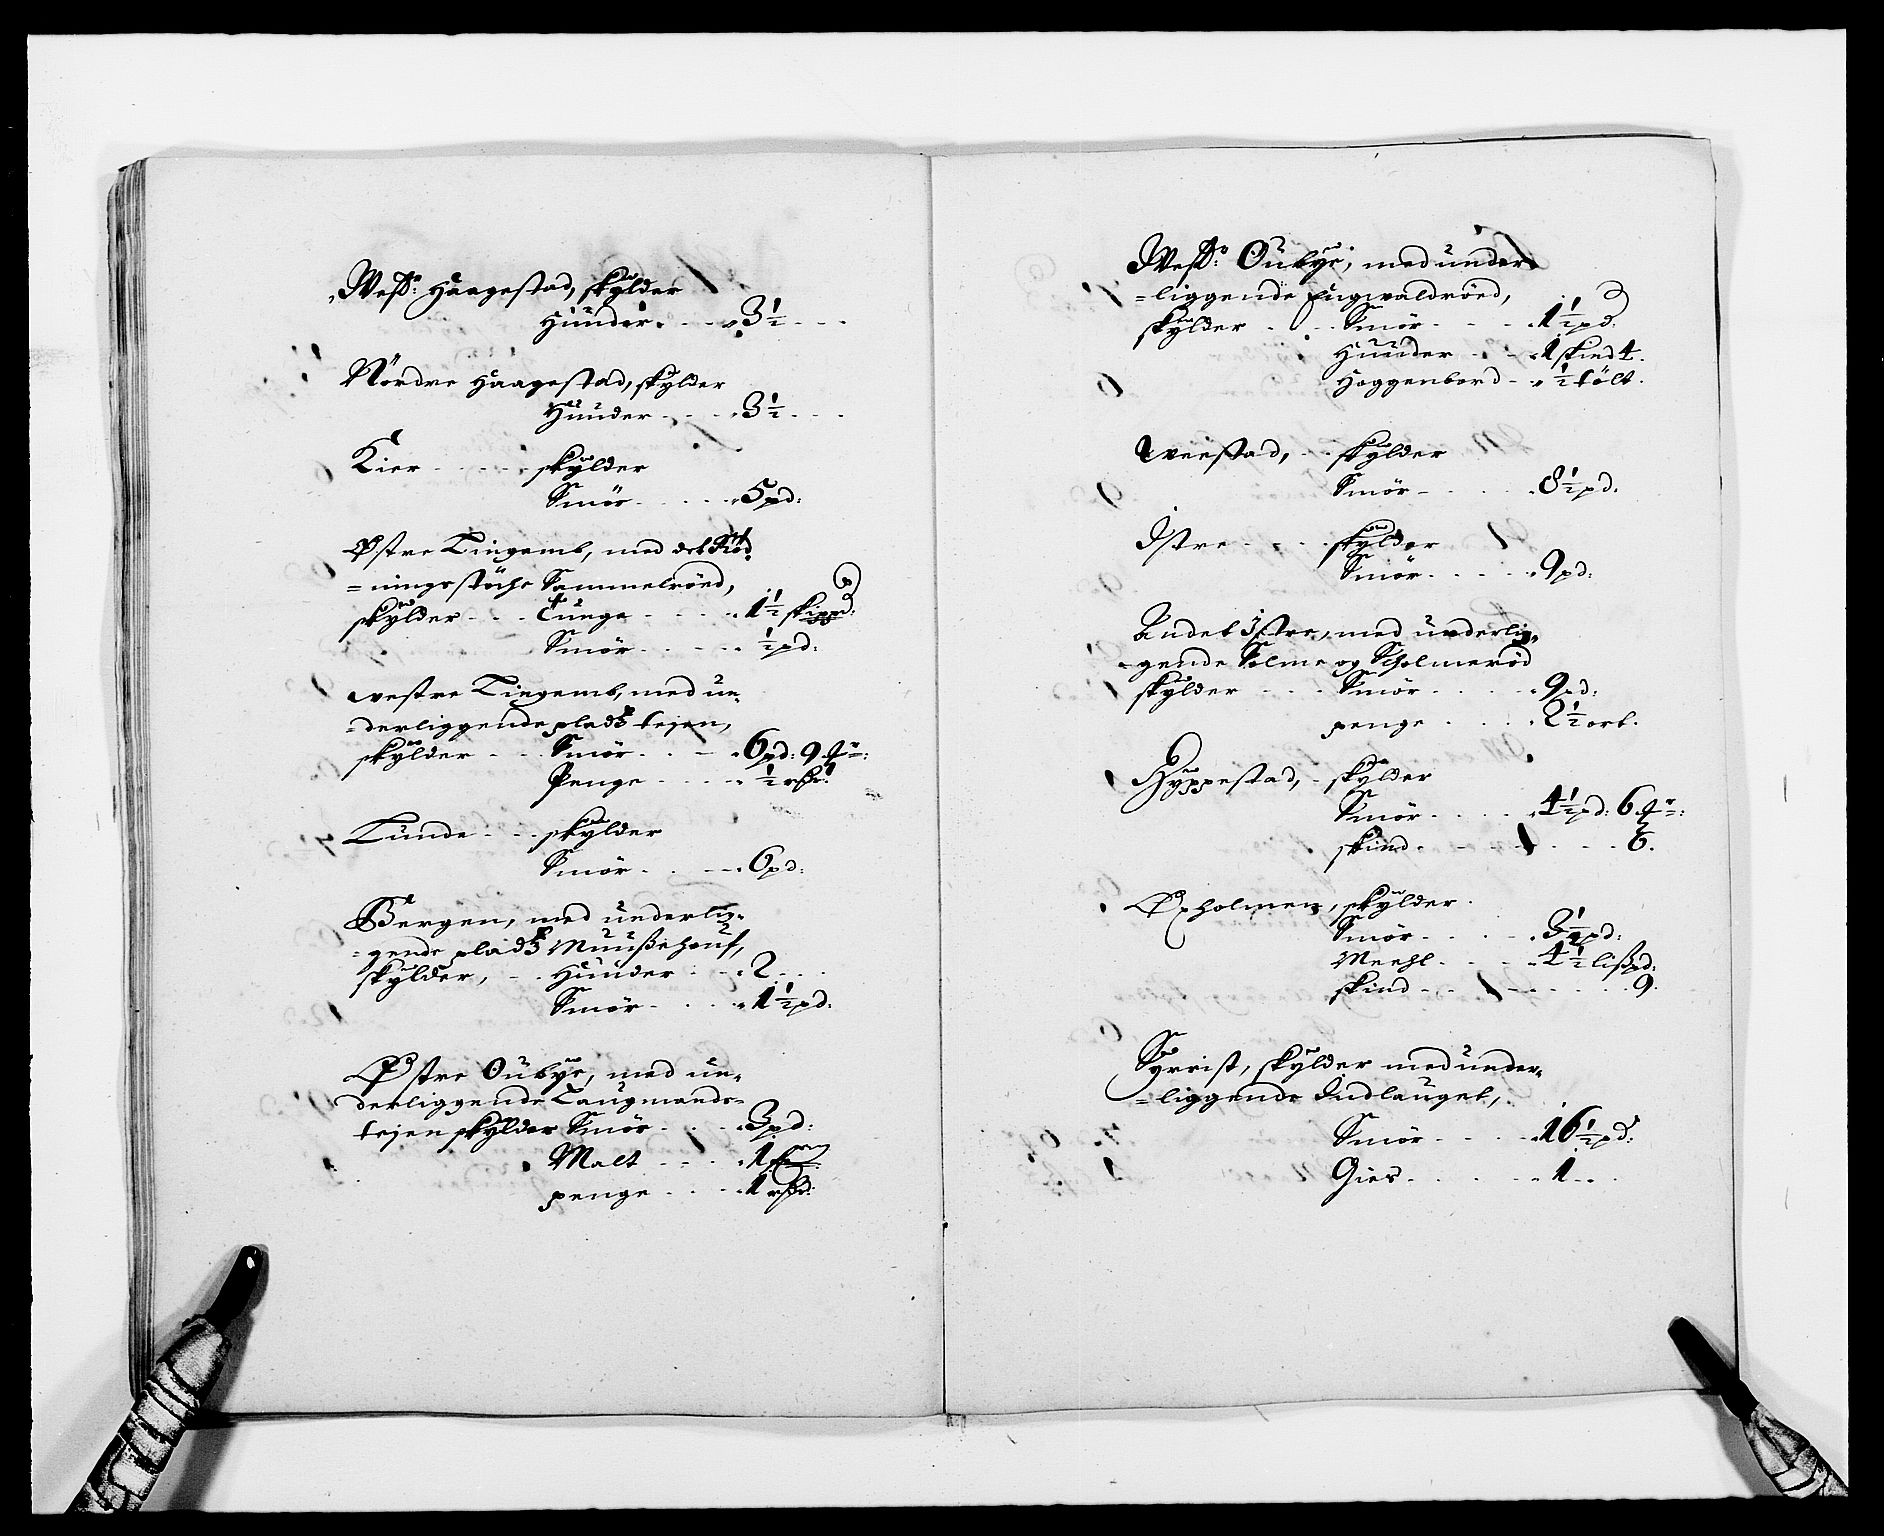 West: Haagestad, skylder
Huuder - - - 3½ - - -
Nordre Haagestad, skylder
Huuder - - - 3½ - - -
Kier - - - - skylder
Smör - - - - 5 pd:
Östre Tingemb, med det
=ningsstöche Sammelröed,
skylder - - - Tunge - - - - 1½ skippd:
Smör - - - - ½ pd:
westre Tingemb, med un=
=derliggende plads tejen,
skylder - - - Smör - - - 6 pd: 9
Penge - - - - ½ rdr:
Tunde - - - skylder
Smör - - - 6 pd:
Bergen, med underlig=
=gende plads Muußehouf,
skylder, - - Huuder - - 2 - - -
Smör - - - - 1½ pd:
Östre Oubye, med un=
derliggende Laugmands=
tejen skylder Smör - - - 3 pd:
Malt - - - 1
penge - - - 1 rdr:
West: Oubye, med under
=liggende Engwaldröed,
skylder - - - Smör - - - 1½ pd:
Huuder - - - 1 skind 4.
Hoggenbord - - ½ tölt.
weestad, - - skylder
Smör - - - - 8½ pd:
Istre - - - - skylder
Smör - - - - 9 pd:
Andet Istre, med underlig=
=gende Solme og Scholmeröd
skylder - - - Smör - - - - 9 pd:
penge - - - - 2½ ort.
Hyppestad, - skylder
Smör - - - - 4½ pd: 6
skind - - - - - - - 6.
Öxholmen, skylder.
Smör - - - - 3½ pd:
Meehl - - - - 4½ lißpd:
skind - - - - - - - 9.
Syrrist, skylder med under=
=liggende Indlauget,
Smör - - - - 16½ pd:
Gies - - - - - 1 - -